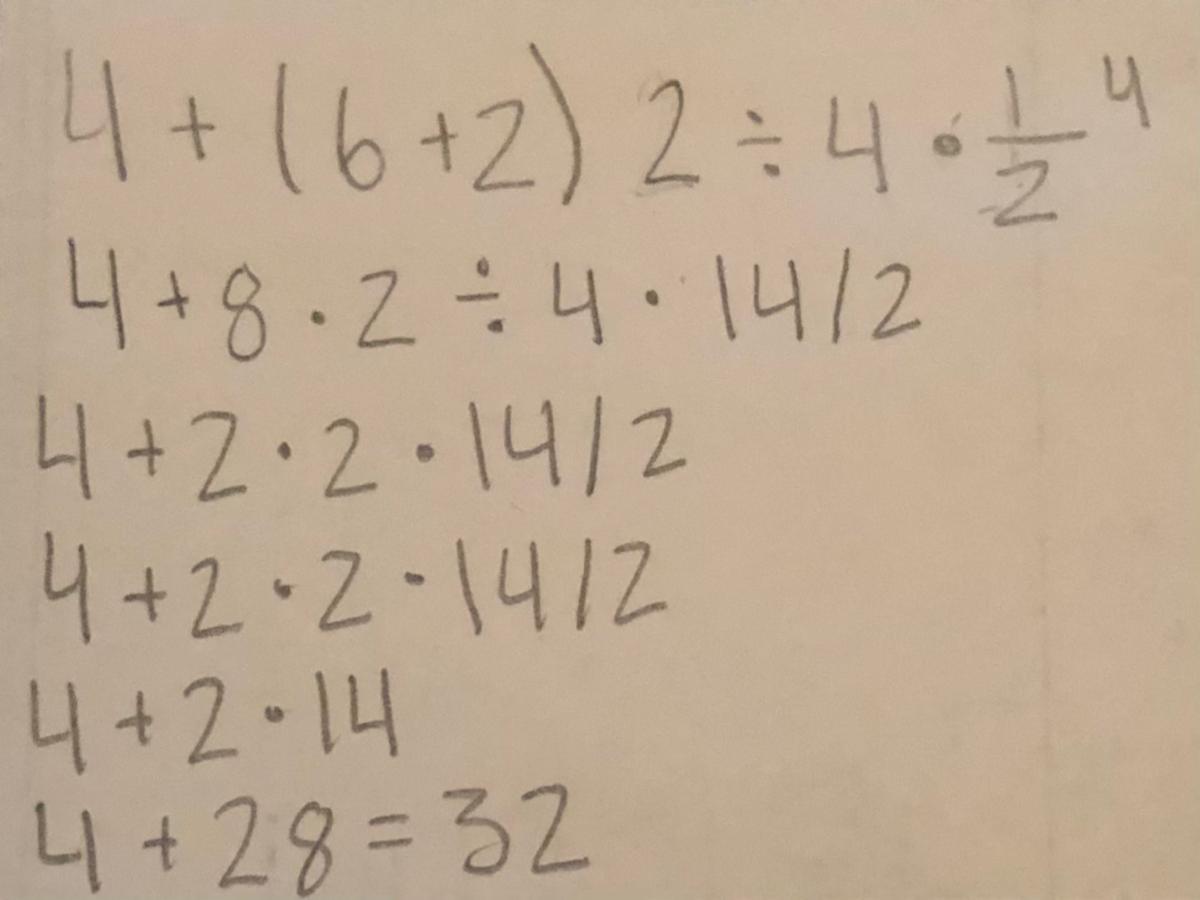 4 + (6 + 2) 2 ÷ 4 · 1/2 ⁴
4 + 8 · 2 ÷ 4 · 14/2
4 + 2 · 2 · 14/2
4 + 2 · 2 · 14/2
4 + 2 · 14
4 + 28 = 32